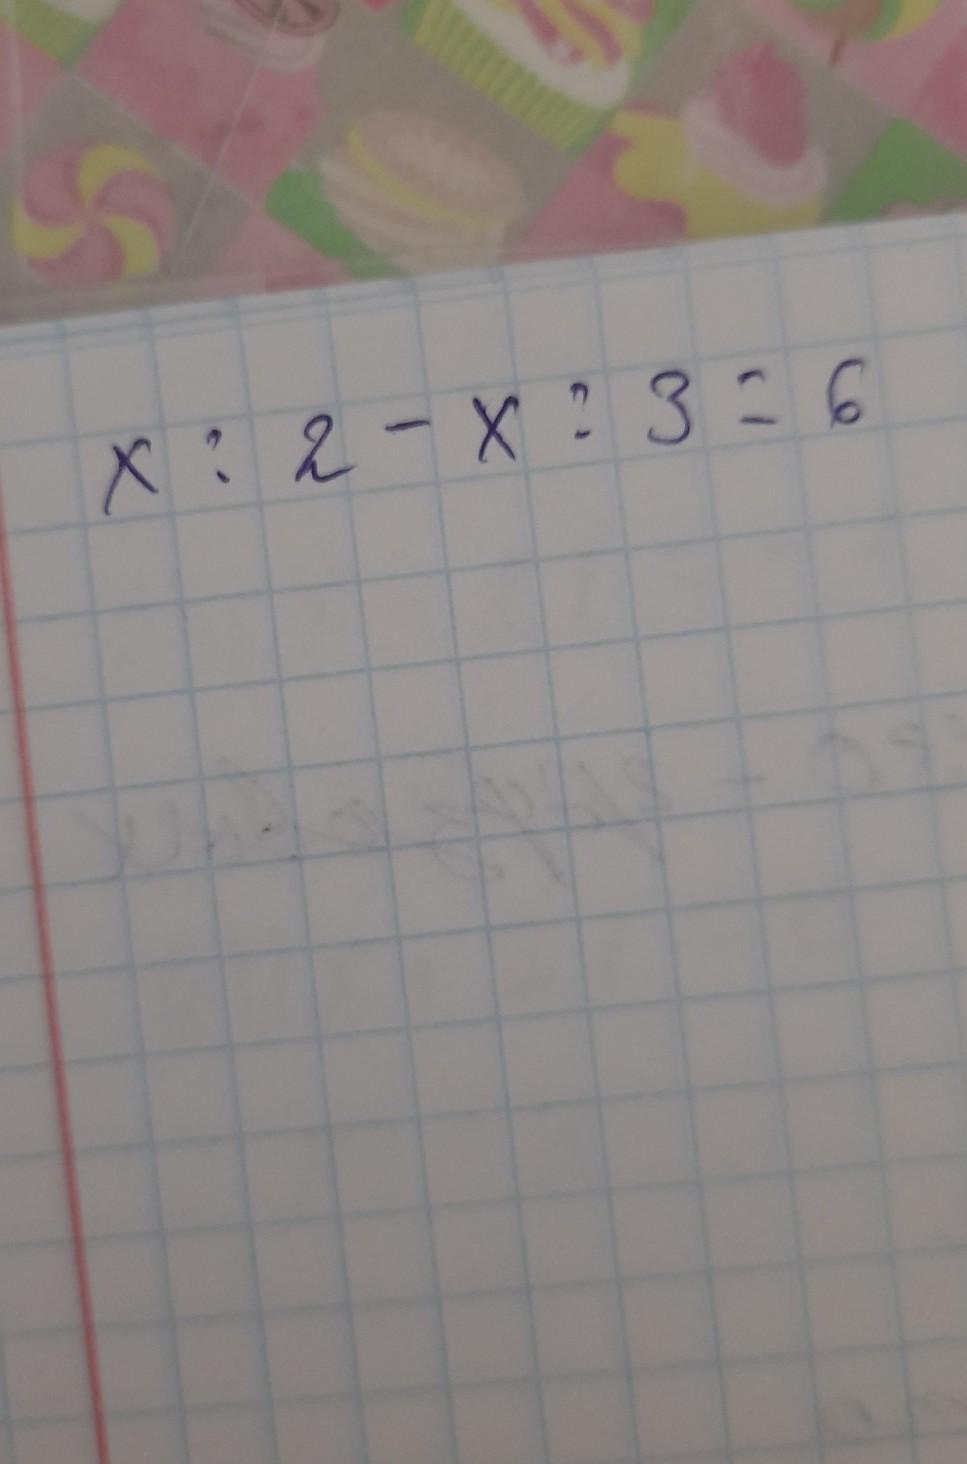 x : 2 - x : 3 = 6